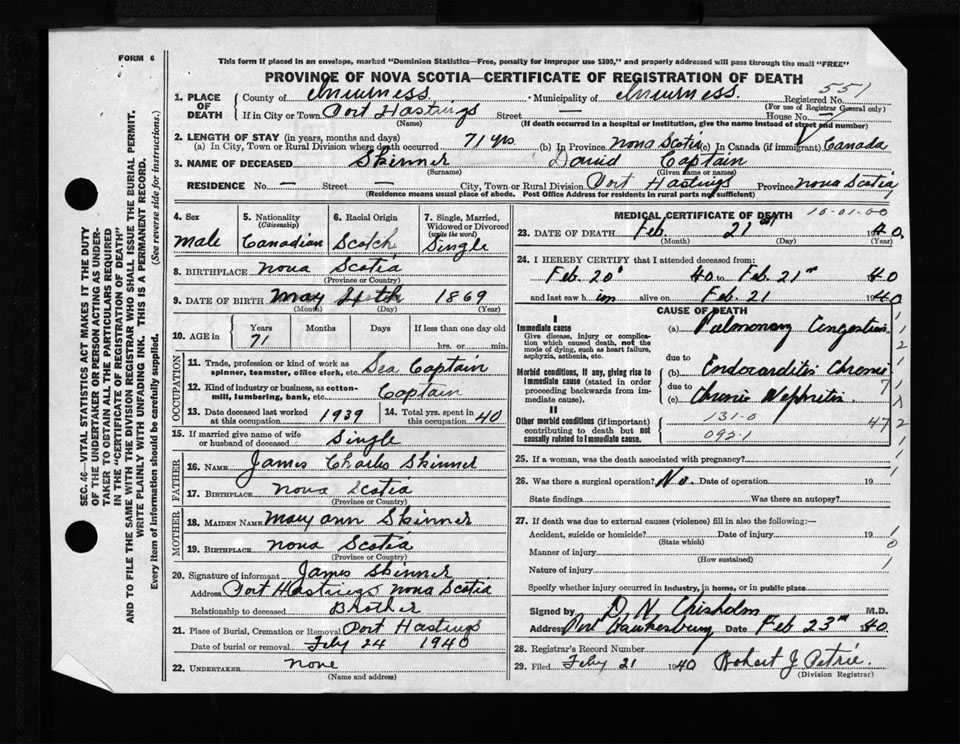 FORM 6
This form if placed in an envelope, marked "Dominion Statistics—Free, penalty for improper use $300," and properly addressed will pass through the mail "FREE"
PROVINCE OF NOVA SCOTIA—CERTIFICATE OF REGISTRATION OF DEATH
551
1. PLACE OF DEATH County of Inverness. Municipality of Inverness. Registered No.
(For use of Registrar General only)
If in City or Town Port Hastings Street — House No. —
(Name) (If death occurred in a hospital or institution, give the name instead of street and number)
2. LENGTH OF STAY (in years, months and days)
(a) In City, Town or Rural Division where death occurred 71 yrs. (b) In Province Nova Scotia (c) In Canada (if immigrant) Canada
3. NAME OF DECEASED Skinner David Captain
(Surname) (Given name or names)
RESIDENCE No. — Street — City, Town or Rural Division Port Hastings Province Nova Scotia
(Residence means usual place of abode. Post Office Address for residents in rural parts not sufficient)
4. Sex Male
5. Nationality (Citizenship) Canadian
6. Racial Origin Scotch
7. Single, Married, Widowed or Divorced (write the word) Single
8. BIRTHPLACE Nova Scotia
(Province or Country)
9. DATE OF BIRTH May 1869
(Month) (Day) (Year)
10. AGE in Years 71 Months Days If less than one day old
hrs. or min.
OCCUPATION
11. Trade, profession or kind of work as spinner, teamster, office clerk, etc. Sea Captain
12. Kind of industry or business, as cotton-mill, lumbering, bank, etc. Captain
13. Date deceased last worked at this occupation 1939
14. Total yrs. spent in this occupation 40
15. If married give name of wife or husband of deceased Single
FATHER
16. NAME James Charles Skinner
17. BIRTHPLACE Nova Scotia
(Province or Country)
MOTHER
18. MAIDEN NAME Mary Ann Skinner
19. BIRTHPLACE Nova Scotia
(Province or Country)
20. Signature of informant James Skinner
Address Port Hastings Nova Scotia
Relationship to deceased Brother
21. Place of Burial, Cremation or Removal Port Hastings
Date of burial or removal Feby 24 1940
22. UNDERTAKER None
(Name and address)
MEDICAL CERTIFICATE OF DEATH 10-01-00
23. DATE OF DEATH Feb. 21st 1940.
(Month) (Day) (Year)
24. I HEREBY CERTIFY that I attended deceased from:
Feb 20 40 to Feb. 21st 40
and last saw him alive on Feb. 21 1940
CAUSE OF DEATH
I
Immediate cause
Give disease, injury or complication which caused death, not the mode of dying, such as heart failure, asphyxia, asthenia, etc.
(a) Pulmonary Congestion
due to
Morbid conditions, if any, giving rise to immediate cause (stated in order proceeding backwards from immediate cause).
(b) Endocarditis Chronic
due to
(c) Chronic Nephritis
II
Other morbid conditions (if important) contributing to death but not causally related to immediate cause.
131-0
092-1
25. If a woman, was the death associated with pregnancy?
26. Was there a surgical operation? No. Date of operation 19
State findings Was there an autopsy?
27. If death was due to external causes (violence) fill in also the following:—
Accident, suicide or homicide? Date of injury 19
(State which)
Manner of injury
(How sustained)
Nature of injury
Specify whether injury occurred in industry, in home, or in public place
Signed by D. N. Chisholm M.D.
Address Port Hawkesbury Date Feb 23rd 40.
28. Registrar's Record Number
29. Filed Feby 21 1940 Robert J Petrie.
(Division Registrar)
SEC. 46—VITAL STATISTICS ACT MAKES IT THE DUTY
OF THE UNDERTAKER OR PERSON ACTING AS UNDER-
TAKER TO OBTAIN ALL THE PARTICULARS REQUIRED
IN THE "CERTIFICATE OF REGISTRATION OF DEATH"
AND TO FILE THE SAME WITH THE DIVISION REGISTRAR WHO SHALL ISSUE THE BURIAL PERMIT.
WRITE PLAINLY WITH UNFADING INK. THIS IS A PERMANENT RECORD.
Every item of information should be carefully supplied. (See reverse side for instructions.)